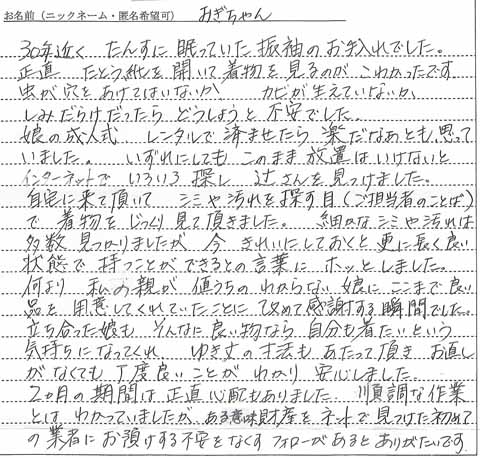 お名前（ニックネーム・匿名希望可） おぎちゃん
30年近く たんすに眠っていた 振袖のお手入れでした。
正直 たとう紙を開いて着物を見るのが こわかったです
虫が穴をあけてはいないか、 カビが生えていないか、
しみだらけだったら どうしようと 不安でした。
娘の成人式 レンタルで済ませたら 楽だなあとも思って
いました。 いずれにしても このまま放置はいけないと
インターネットで いろいろ探し 辻さんを見つけました。
自宅に来て頂いて シミや汚れを探す目(ご担当者のことば)
で 着物をじっくり見て頂きました。 細かなシミや汚れは
多数 見つかりましたが 今 きれいにしておくと 更に長く良い
状態で 持つことができるとの言葉に ホッとしました。
何より 私の親が 値うちのわからない 娘に ここまで良い
品を 用意してくれていたことに 改めて感謝する瞬間でした。
立ち合った娘も そんなに良い物なら 自分も着たいという
気持ちになってくれ ゆき丈の寸法も あたって頂き お直し
がなくても 丁度良いことが わかり 安心しました。
2ヵ月の期間は 正直心配もありました。 順調な作業
とは わかっていましたが、ある意味財産を ネットで見つけた初めて
の業者に お預けする不安をなくす フォローがあると ありがたいです。